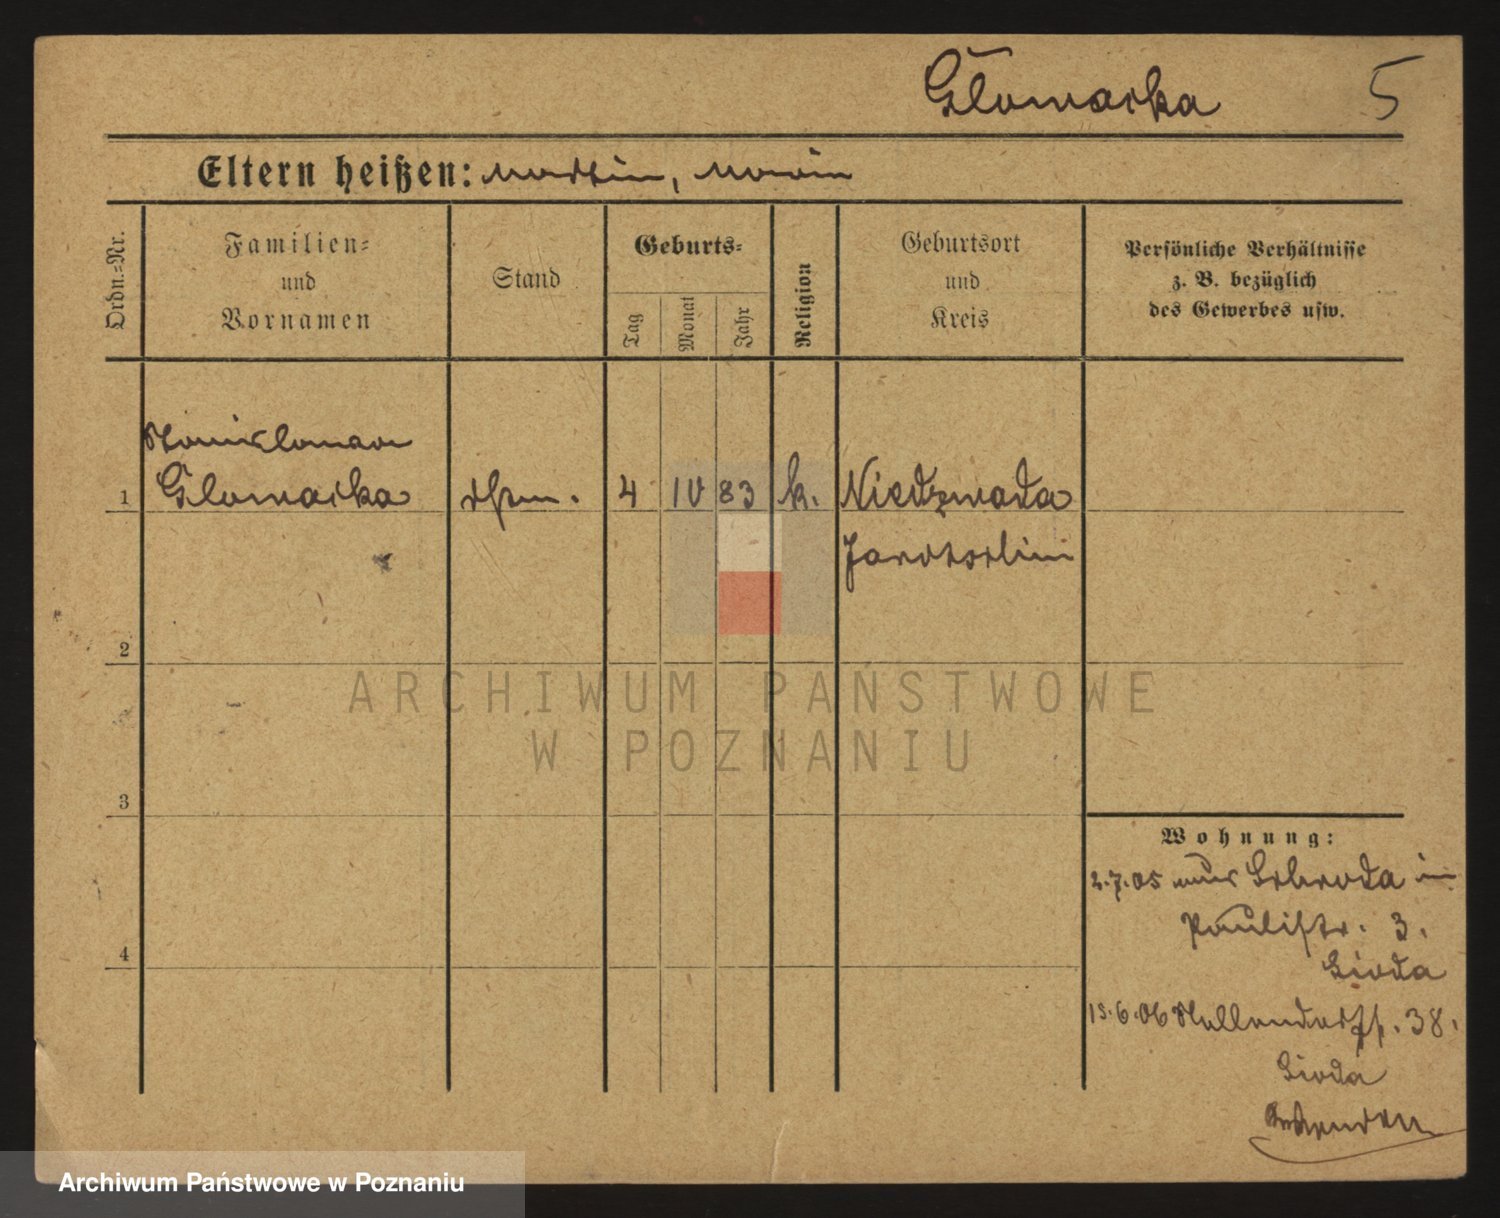 Głowacka 5
Eltern heißen: Martin, Maria
Ordn.=Nr.
Familien=
und
Vornamen
Stand
Geburts=
Tag
Monat
Jahr
Religion
Geburtsort
und
Kreis
Persönliche Verhältnisse
z. B. bezüglich
des Gewerbes usw.
1 Głowacka 4 IV 83 k. Niedzwada
Jarotschin
2
3
4
Wohnung:
2.7.05 aus Schroda in
Paulistr. 3.
15.6.06 38.
ARCHIWUM PAŃSTWOWE
W POZNANIU
Archiwum Państwowe w Poznaniu